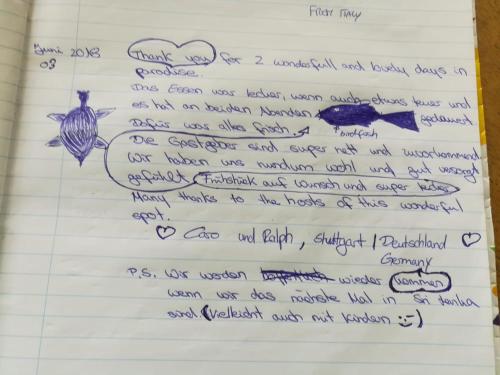 FROM ITALY
Juni 2018
03
Thank you for 2 wonderfull and lovely days in
paradise.
Das Essen war lecker, wenn auch etwas teuer und
es hat an beiden Abenden gedauert
Dafür war alles frisch.
birdfisch
Die Gastgeber sind super nett und zuvorkommend
Wir haben uns rundum wohl und gut versorgt
gefühlt. Frühstück auf Wunsch und super lecker
Many thanks to the hosts of this wonderful
spot.
♡ Caro und Ralph, Stuttgart / Deutschland ♡
Germany
P.S. Wir werden wieder kommen
wenn wir das nächste Mal in Sri Lanka
sind. (Vielleicht auch mit Kindern :-)